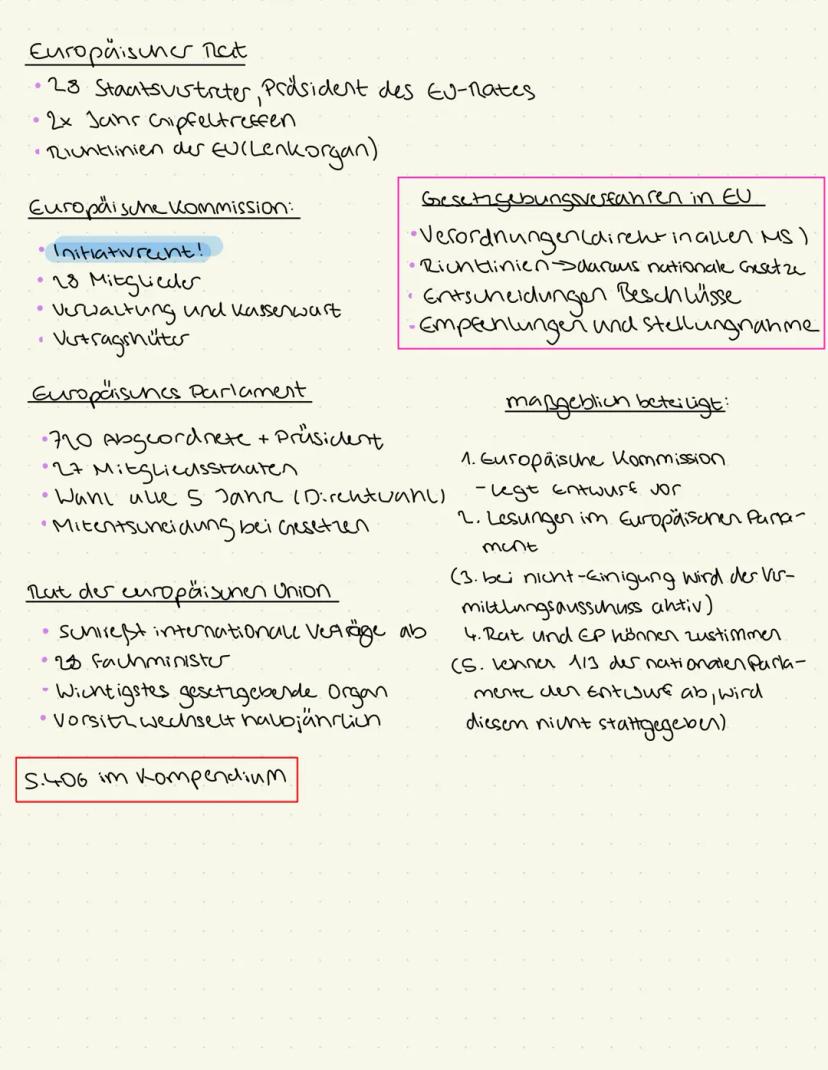 Europäischer Rat
• 28 Staatsvertreter, Präsident des EU-Rates
• 2x Jahr Gipfeltreffen
• Richtlinien der EU (Lenkorgan)
Europäische Kommission:
• Initiativrecht!
• 28 Mitglieder
• Verwaltung und Kassenwart
• Vertragshüter
Gesetzgebungsverfahren in EU
• Verordnungen (direkt in allen MS)
• Richtlinien → daraus nationale Gesetze
• Entscheidungen Beschlüsse
• Empfehlungen und Stellungnahme
Europäisches Parlament
• 720 Abgeordnete + Präsident
• 27 Mitgliedsstaaten
• Wahl alle 5 Jahre (Direktwahl)
• Mitentscheidung bei Gesetzen
Rat der europäischen Union
• schließt internationale Verträge ab
• Fachminister
- Wichtigstes gesetzgebende Organ
• Vorsitz wechselt halbjährlich
maßgeblich beteiligt:
1. Europäische Kommission
- legt Entwurf vor
2. Lesungen im Europäischen Parla-
ment
(3. bei nicht-Einigung wird der Ver-
mittlungsausschuss aktiv)
4. Rat und EP können zustimmen
(5. lehnen 1/3 der nationalen Parla-
mente den Entwurf ab, wird
diesem nicht stattgegeben)
S.406 im Kompendium